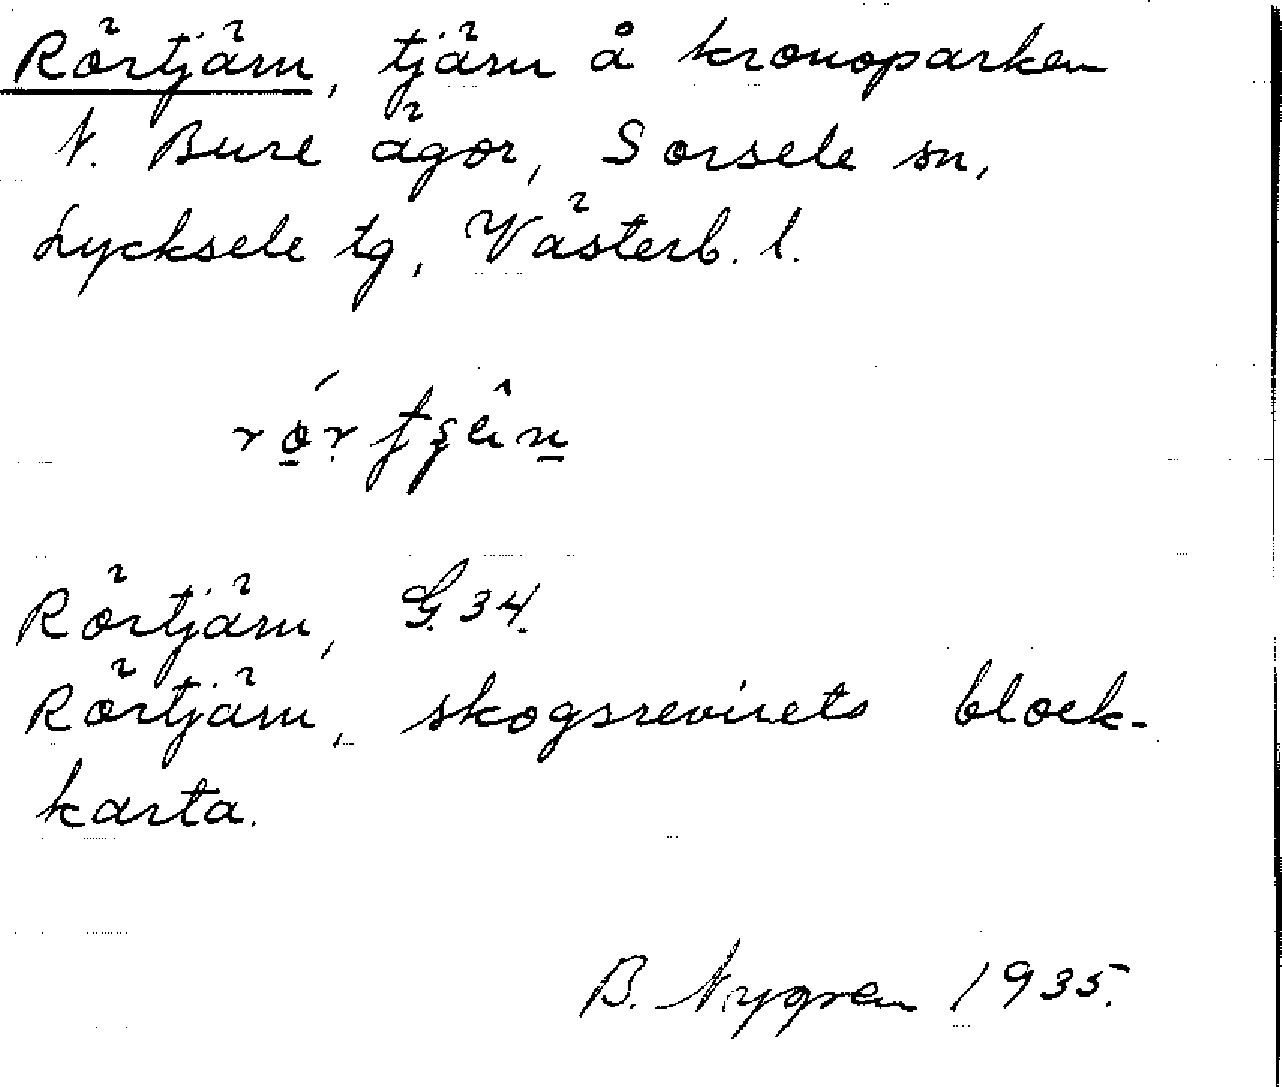 Rörtjärn, tjärn å kronoparken
N. Bure ägor, Sorsele sn,
Lycksele tg, Västerb. l.
Rörtjärn, G. 34.
Rörtjärn, skogsrevirets block-
karta.
B. Nygren 1935.